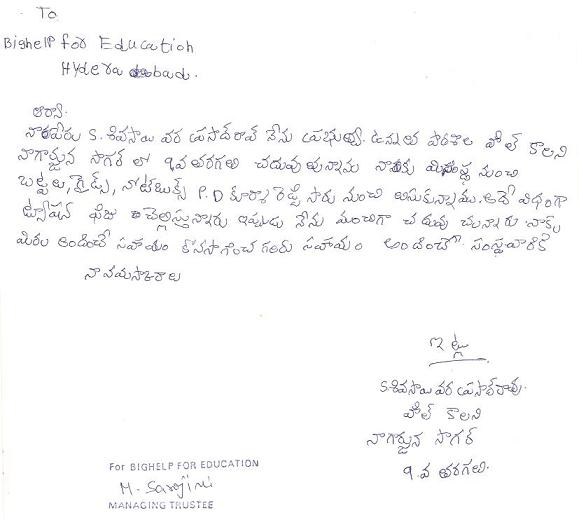 To
Bighelp for Education
Hyderabad.
నాపేరు S. శివసాయి వర ప్రసాద్‌రావ్ నేను ప్రభుత్వ ఉన్నత పాఠశాల హిల్ కాలని
నాగార్జున సాగర్ లో 9వ తరగతి చదువుతున్నాను నాకు మీ సంస్థ నుంచి
బట్టలు, గైడ్స్, నోట్‌బుక్స్ P.D కూర్మా రెడ్డి సారు నుంచి తీసుకున్నాము. అదే విధంగా
ట్యూషన్ ఫీజు చెల్లిస్తున్నారు ఇప్పుడు నేను మంచిగా చదువు చున్నారు నాకు
మీరు అందించే సహాయం కొనసాగించ గలరు సహాయం అందించే సంస్థవారికి
నా నమస్కారాలు
ఇట్లు
S. శివసాయి వర ప్రసాద్‌రావు.
హిల్ కాలని
నాగార్జున సాగర్
9. వ తరగతి.
For BIGHELP FOR EDUCATION
M. Sarojini
MANAGING TRUSTEE